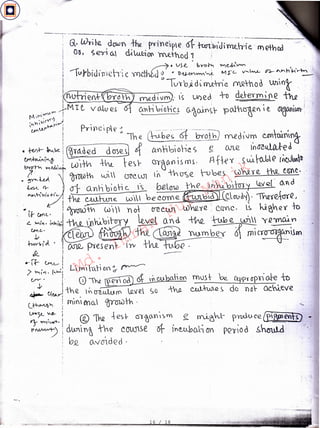 Q. Write down the principle of turbidimetric method
OR. Serial dilution method?
→• use broth medium
Turbidimetric method: • Determine MIC value of antibiotics
Turbidimetric method using
(nutrient broth medium) is used to determine the
MIC values of antibiotics against pathogenic organism
Principle:
The tubes of broth medium containing
graded doses of antibiotics & are inoculated
with the test organisms. After suitable incubate
growth will occur in those tubes where the conc.
of antibiotic is below the inhibitory level and
the culture will become turbid (cloudy). Therefore,
growth will not occur where conc. is higher to
the inhibitory level and the tube will remain
clear though the large number of microorganism
are present in the tube.
Minimum
inhibitory
concentration
• test tube
containing
broth medium
• graded
dose of
antibiotics
• If conc.
< min. inhib
conc.
↓
turbid.
&
• If conc.
> min. inhi
conc.
↓
clear
(though
large no
of micro.
present)
Limitation:
① The period of incubation must be appropriate to
the inoculum level so the cultures do not achieve
minimal growth.
② The test organism & might produce pigments
during the course of incubation period should
be avoided.